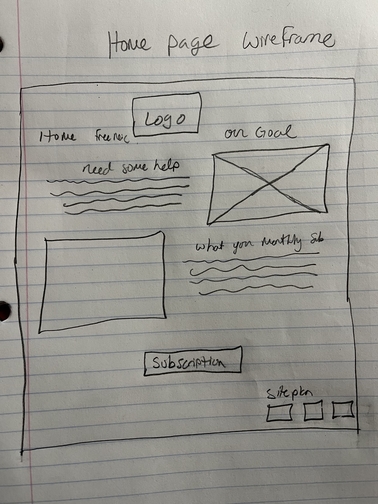 Home page Wireframe
Logo
Home
our Goal
need some help
what you monthly Sub
Subscription
Site plan